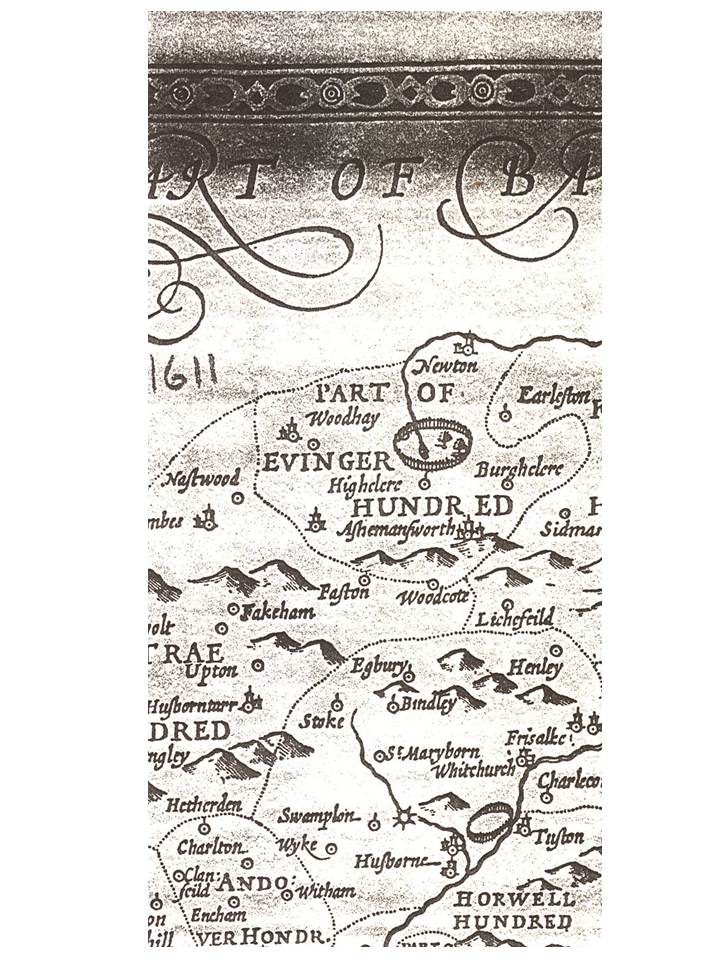 ART OF B
1611
Newton
PART OF
Earleston
Woodhay
EVINGER
Burghclere
Nastwood
Highclere
HUNDRED
mbes
Ashemansworth
Sidman
Faston
Woodcote
Fakeham
Lichefeild
olt
TRAE
Upton
Egbury
Henley
Husborntarr
Bindley
DRED
Stoke
Frisalke
ngley
St Maryborn
Whitchurch
Charleco
Hetherden
Swamplon
Tuston
Charlton
Wyke
Husborne
Clan:
feild
ANDO
Witham
HORWELL
Encham
on
HUNDRED
hill
VER HONDR.
PART OF